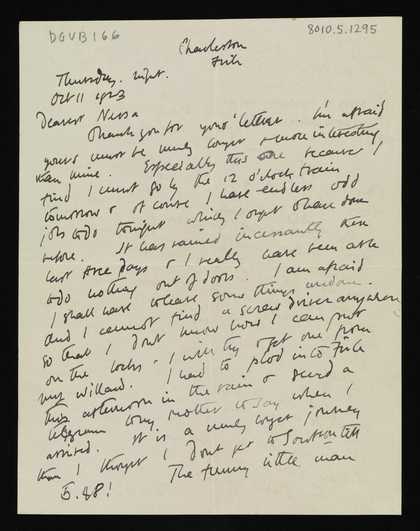 DGVB166
8010.5.1295
Charleston
Firle
Thursday. night.
Oct 11 1923
Dearest Nessa
Thank you for your letter. I'm afraid
yours must be much longer & more interesting
than mine. Especially this one because I
find I must go by the 12 o'clock train
tomorrow & of course I have endless odd
jobs to do tonight which I ought to have done
before. It has rained incessantly these
last three days & I really have been able
to do nothing out of doors. I am afraid
I shall have to leave some things undone.
And I cannot find a screw driver anywhere
so that I don't know how I can put
on the locks. I will try & get one from
my Willard. I had to plod into Firle
this afternoon in the rain & send a
telegram to my mother to say when I
arrived. It is a much longer journey
than I thought I don't get to
5.28! The funny little man